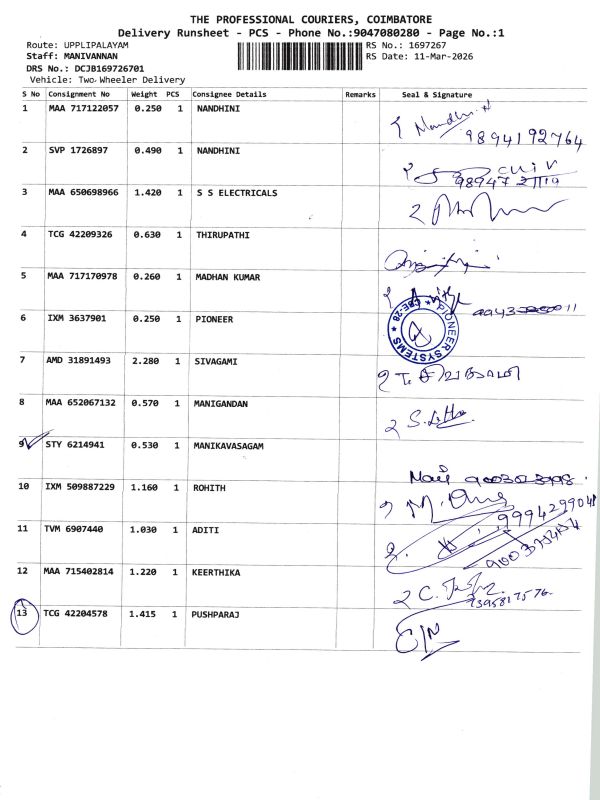 THE PROFESSIONAL COURIERS, COIMBATORE
Delivery Runsheet - PCS - Phone No.:9047080280 - Page No.:1
Route: UPPLIPALAYAM RS No.: 1697267
Staff: MANIVANNAN RS Date: 11-Mar-2026
DRS No.: DCJB169726701
Vehicle: Two Wheeler Delivery
S No Consignment No Weight PCS Consignee Details Remarks Seal & Signature
1 MAA 717122057 0.250 1 NANDHINI
9894192764
2 SVP 1726897 0.490 1 NANDHINI
3 MAA 650698966 1.420 1 S S ELECTRICALS
4 TCG 42209326 0.630 1 THIRUPATHI
5 MAA 717170978 0.260 1 MADHAN KUMAR
6 IXM 3637901 0.250 1 PIONEER
PIONEER SYSTEMS * CBE-28 *
7 AMD 31891493 2.280 1 SIVAGAMI
8 MAA 652067132 0.570 1 MANIGANDAN
9 STY 6214941 0.530 1 MANIKAVASAGAM
10 IXM 509887229 1.160 1 ROHITH
11 TVM 6907440 1.030 1 ADITI
12 MAA 715402814 1.220 1 KEERTHIKA
13 TCG 42204578 1.415 1 PUSHPARAJ